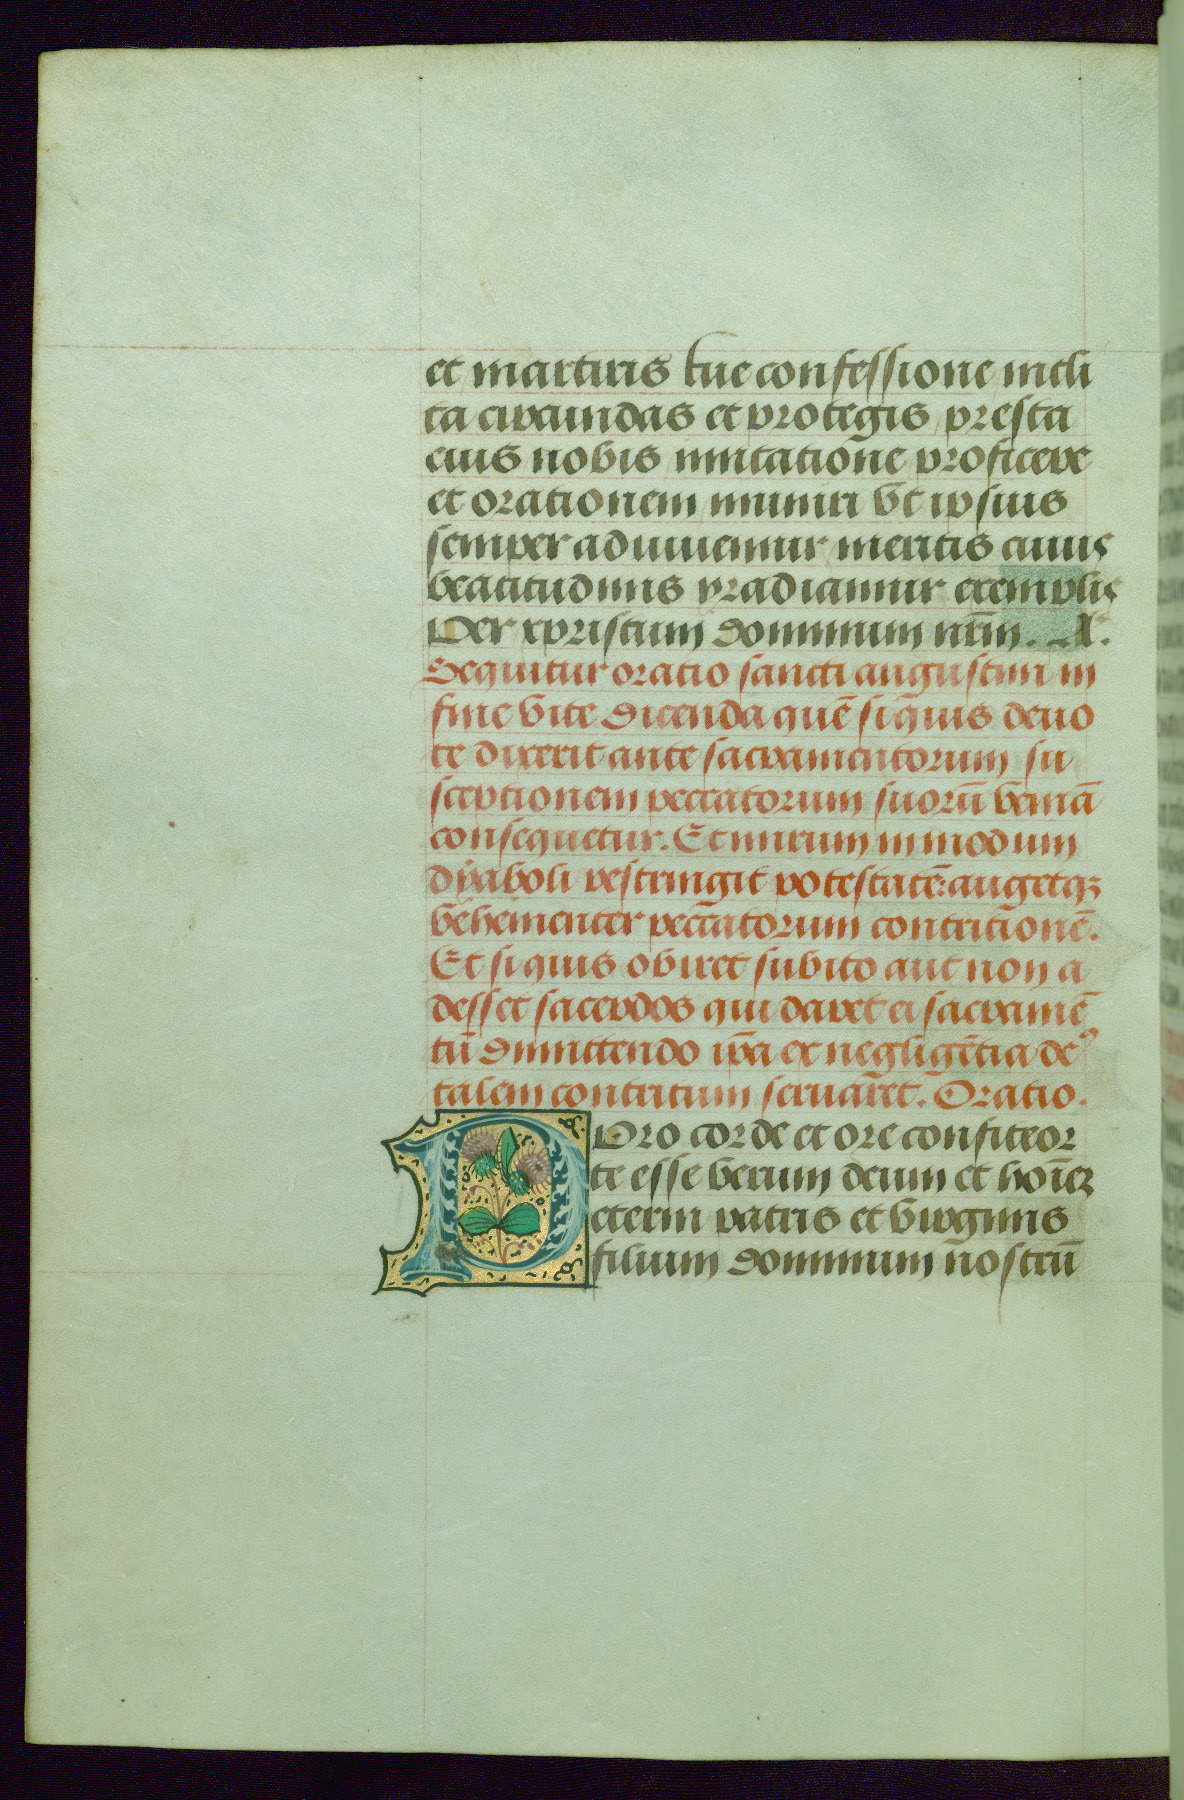 et martiris tue confessione incli
ta circundas et protegis presta
eius nobis imitatione proficere
et orationem muniri vt ipsius
semper adiuuemur meritis cuius
beatitudinis yradiamur exemplis
Per xpristum dominum nr̄m. A.
Sequitur oratio sancti augustini in
fine vite dicenda quē si quis deuo
te dixerit ante sacramentorum su
sceptionem peccatorum suorū veniā
consequetur. Et mirum in modum
dyaboli restringit potestatē: augetqz
vehementer peccatorum contritionē.
Et si quis obiret subito aut non a
desset sacerdos qui daret ei sacramē
tū dimittendo ip̄a ex negligētia deꝰ
talem contritum seruaret. Oratio.
Pro corde et ore confiteor
te esse verum deum et hoīez
eterni patris et virginis
filium dominum nostrū